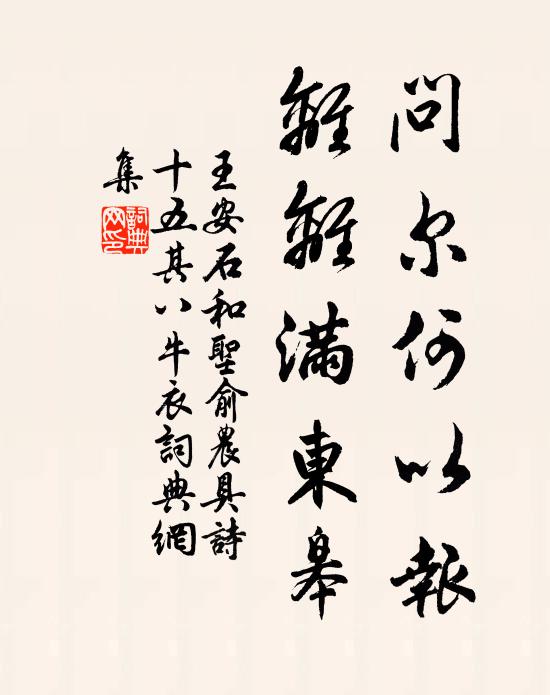 問尔何以報
離離滿東皋
王安石和聖俞農具詩
十五其八牛衣詞典網
集
詞典
网印